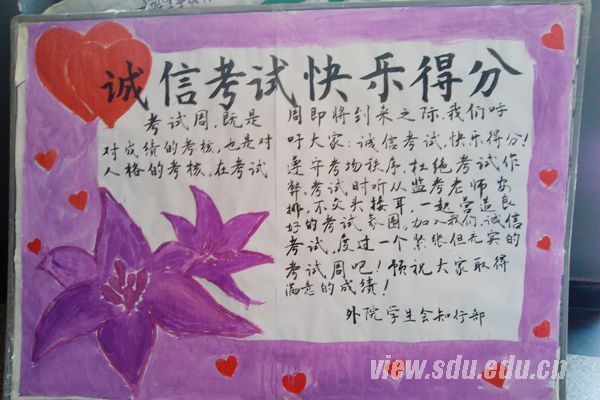 诚信考试快乐得分
考试周,既是
对成绩的考核,也是对
人格的考核,在考试
周即将到来之际,我们呼
吁大家:诚信考试,快乐得分!
遵守考场秩序,杜绝考试作
弊、考试时听从监考老师安
排,不交头接耳,一起营造良
好的考试氛围。加入我们,诚信
考试,度过一个紧张但充实的
考试周吧!预祝大家取得
满意的成绩!
外院学生会知行部
view.sdu.edu.cn